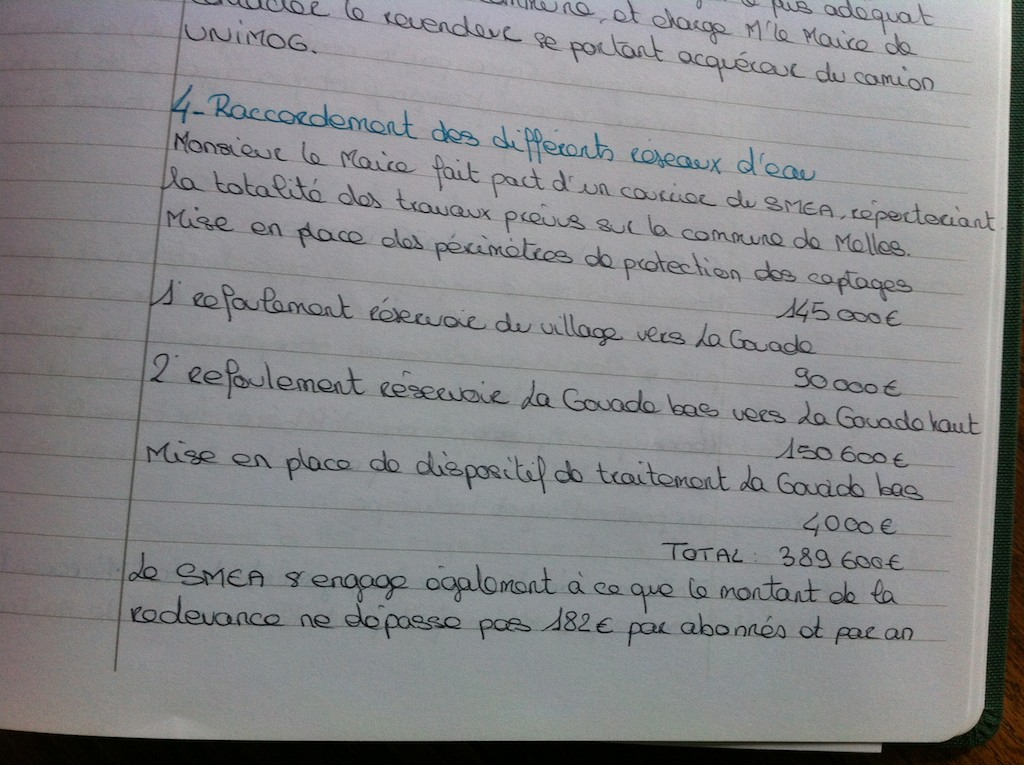 pus adéquat
le revendeur se portant acquéreur du camion
commune, et charge M'le Maire de
UNIMOG.
4- Raccordement des différents réseaux d'eau
Monsieur le Maire fait part d'un courrier du SMEA, répertoriant
la totalité des travaux prévus sur la commune de Melles.
Mise en place des périmètres de protection des captages
145 000€
1° refoulement réservoir du village vers La Gouade
90 000€
2° refoulement réservoir La Gouade bas vers La Gouade haut
150 600€
Mise en place de dispositif de traitement La Gouade bas
4000€
TOTAL : 389 600€
Le SMEA s'engage également à ce que le montant de la
redevance ne dépasse pas 182€ par abonnés et par an